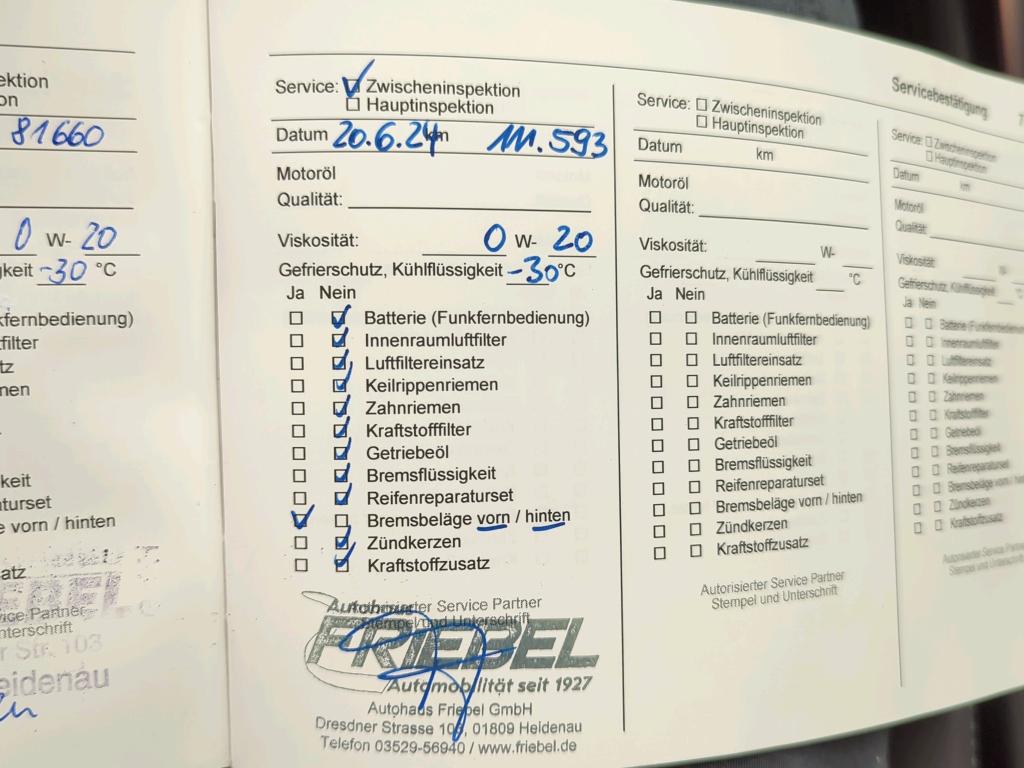 ektion
on
81660
0 W- 20
gkeit -30 °C
kfernbedienung)
tfilter
tz
men
keit
aturset
e vorn / hinten
atz
IEBEL
vice Partner
nterschrift
r Str. 103
eidenau
Service: Zwischeninspektion
Hauptinspektion
Datum 20.6.24 km 111.593
Motoröl
Qualität:
Viskosität: 0 W- 20
Gefrierschutz, Kühlflüssigkeit -30 °C
Ja Nein
Batterie (Funkfernbedienung)
Innenraumluftfilter
Luftfiltereinsatz
Keilrippenriemen
Zahnriemen
Kraftstofffilter
Getriebeöl
Bremsflüssigkeit
Reifenreparaturset
Bremsbeläge vorn / hinten
Zündkerzen
Kraftstoffzusatz
Autorisierter Service Partner
Stempel und Unterschrift
Autohaus
FRIEBEL
Automobilität seit 1927
Autohaus Friebel GmbH
Dresdner Strasse 103, 01809 Heidenau
Telefon 03529-56940 / www.friebel.de
Service: Zwischeninspektion
Hauptinspektion
Datum km
Motoröl
Qualität:
Viskosität: W-
Gefrierschutz, Kühlflüssigkeit °C
Ja Nein
Batterie (Funkfernbedienung)
Innenraumluftfilter
Luftfiltereinsatz
Keilrippenriemen
Zahnriemen
Kraftstofffilter
Getriebeöl
Bremsflüssigkeit
Reifenreparaturset
Bremsbeläge vorn / hinten
Zündkerzen
Kraftstoffzusatz
Autorisierter Service Partner
Stempel und Unterschrift
Servicebestätigung 7
Service: Zwischeninspektion
Hauptinspektion
Datum km
Motoröl
Qualität:
Viskosität: W-
Gefrierschutz, Kühlflüssigkeit °C
Ja Nein
Batterie (Funkfernbedienung
Innenraumluftfilter
Luftfiltereinsatz
Keilrippenriemen
Zahnriemen
Kraftstofffilter
Getriebeöl
Bremsflüssigkeit
Reifenreparaturset
Bremsbeläge vorn / hinten
Zündkerzen
Kraftstoffzusatz
Autorisierter Service Partner
Stempel und Unterschrift